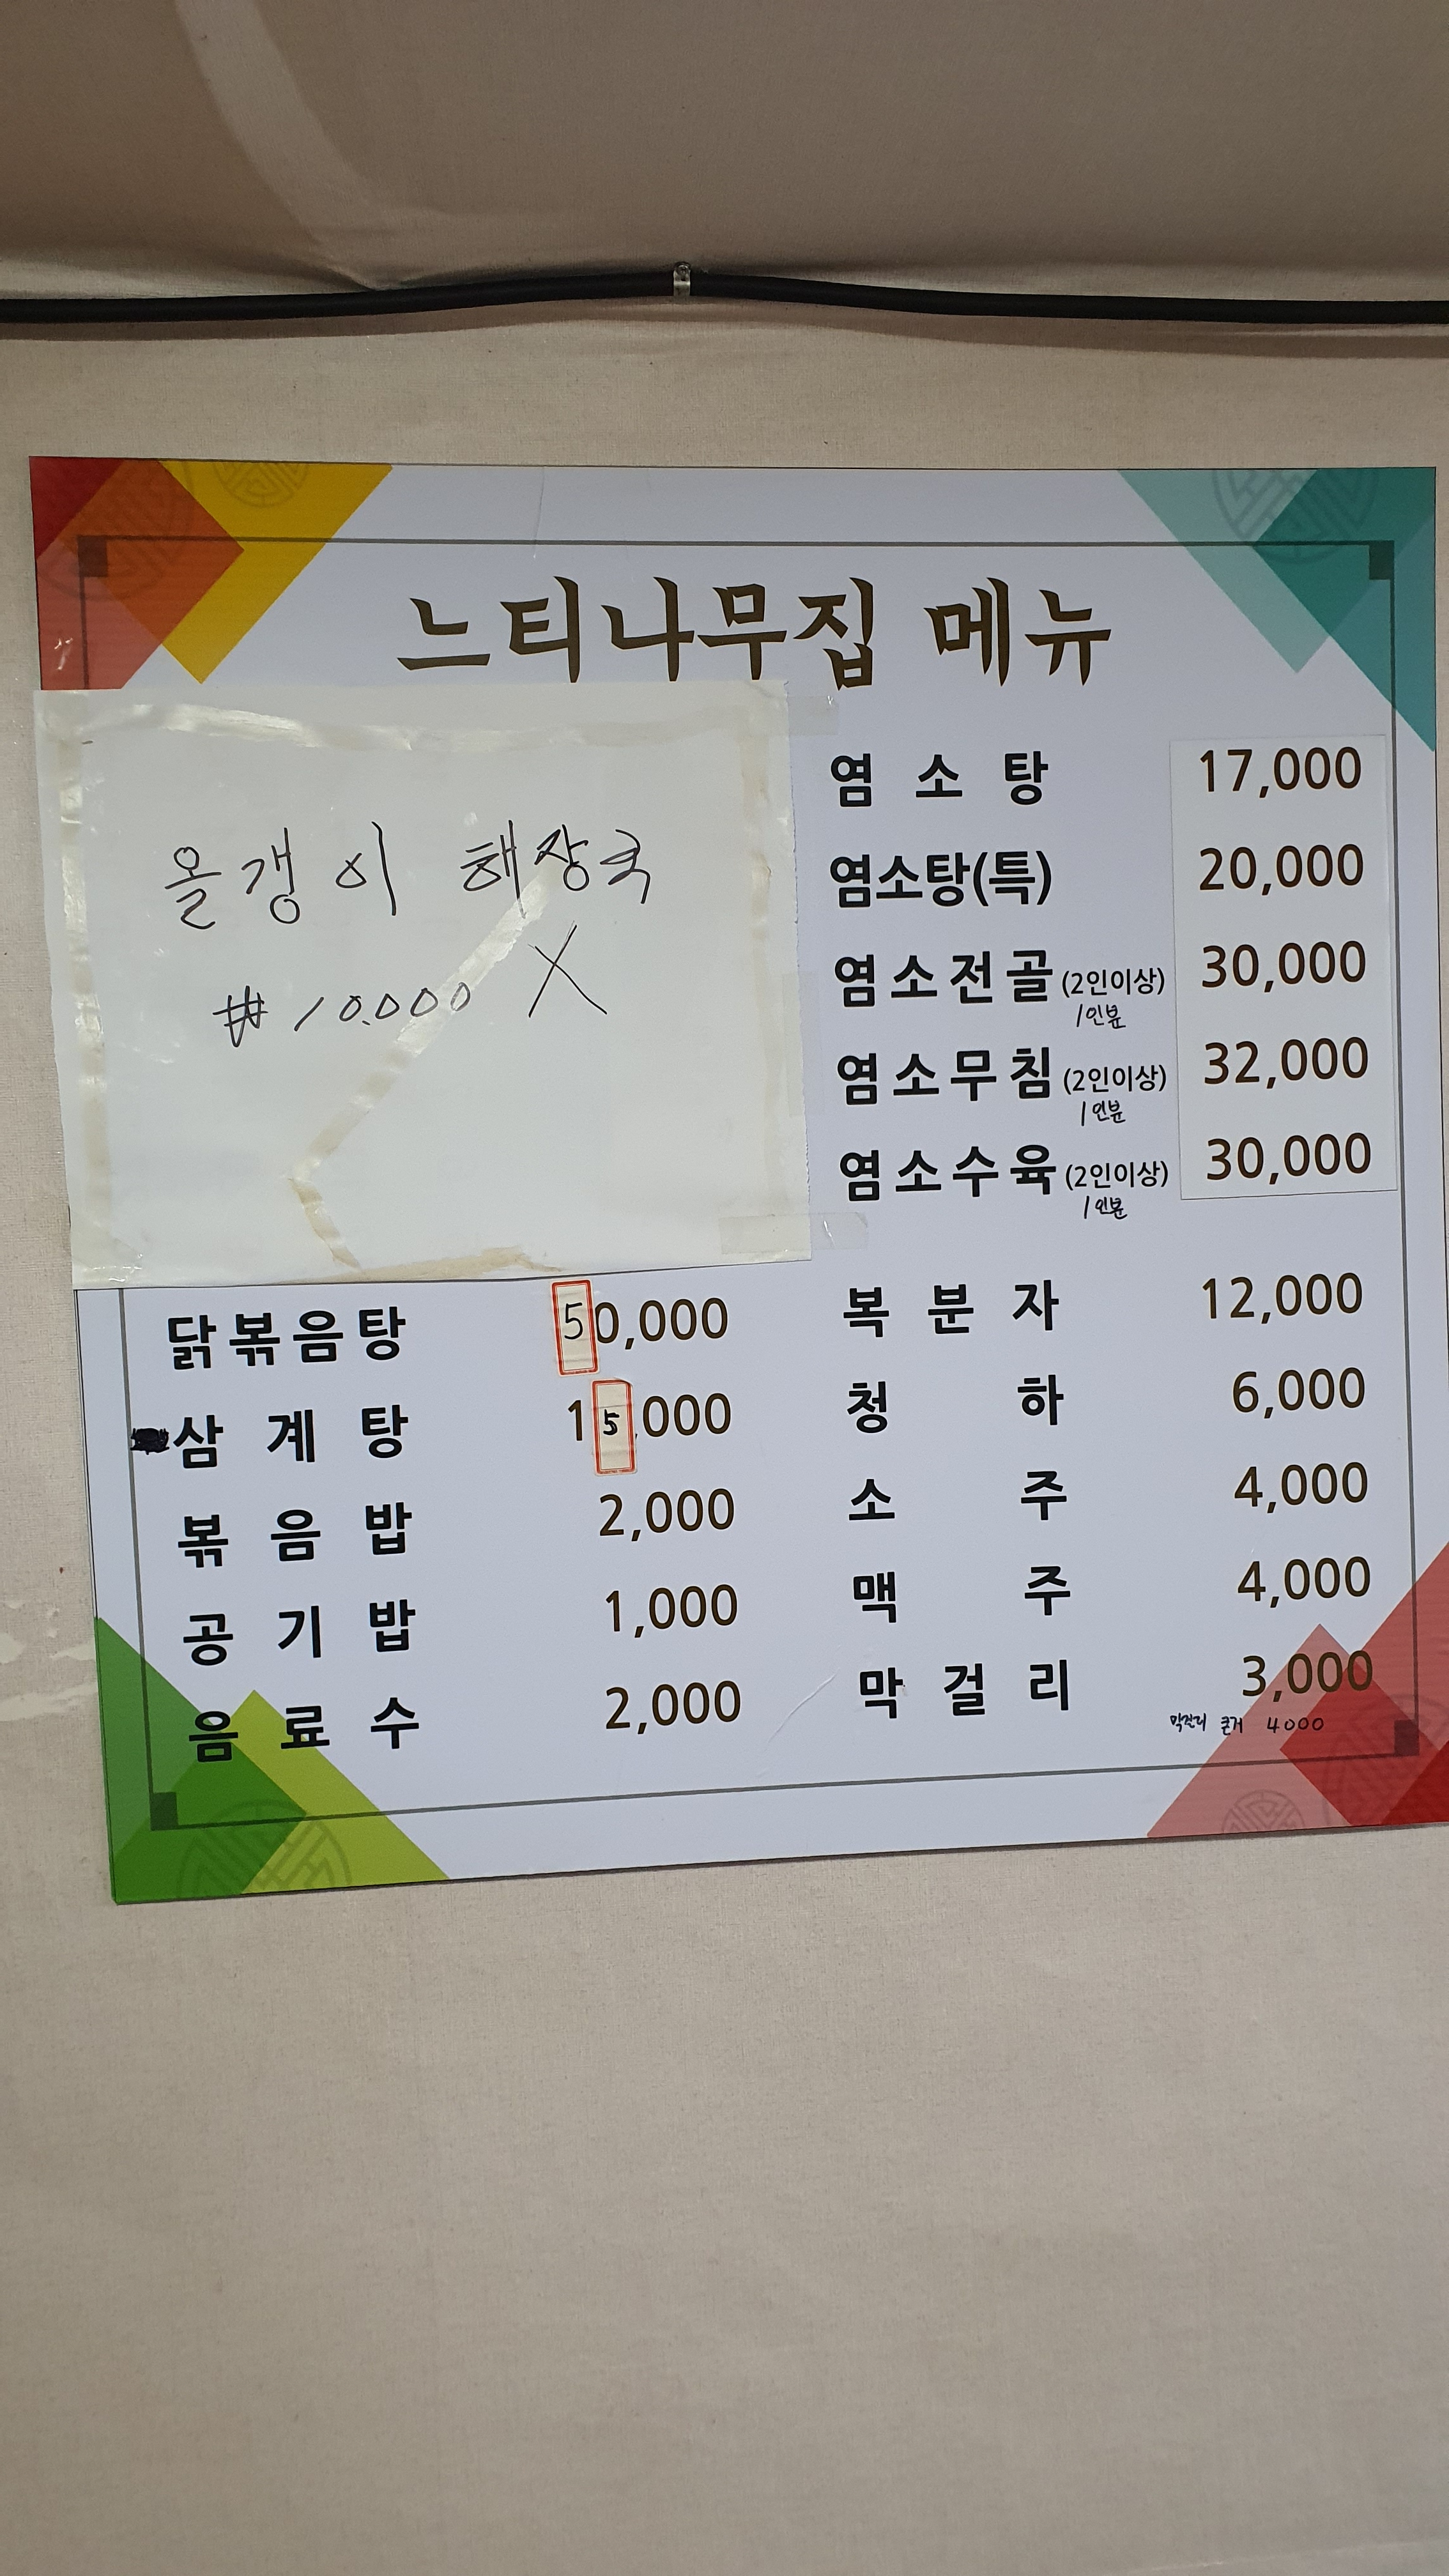 느티나무집 메뉴
올갱이 해장국
# 10.000 X
닭볶음탕 50,000
삼계탕 15,000
볶음밥 2,000
공기밥 1,000
음료수 2,000
염소탕 17,000
염소탕(특) 20,000
염소전골(2인이상) 30,000
1인분
염소무침(2인이상) 32,000
1인분
염소수육(2인이상) 30,000
1인분
복분자 12,000
청하 6,000
소주 4,000
맥주 4,000
막걸리 3,000
막걸리 큰거 4000